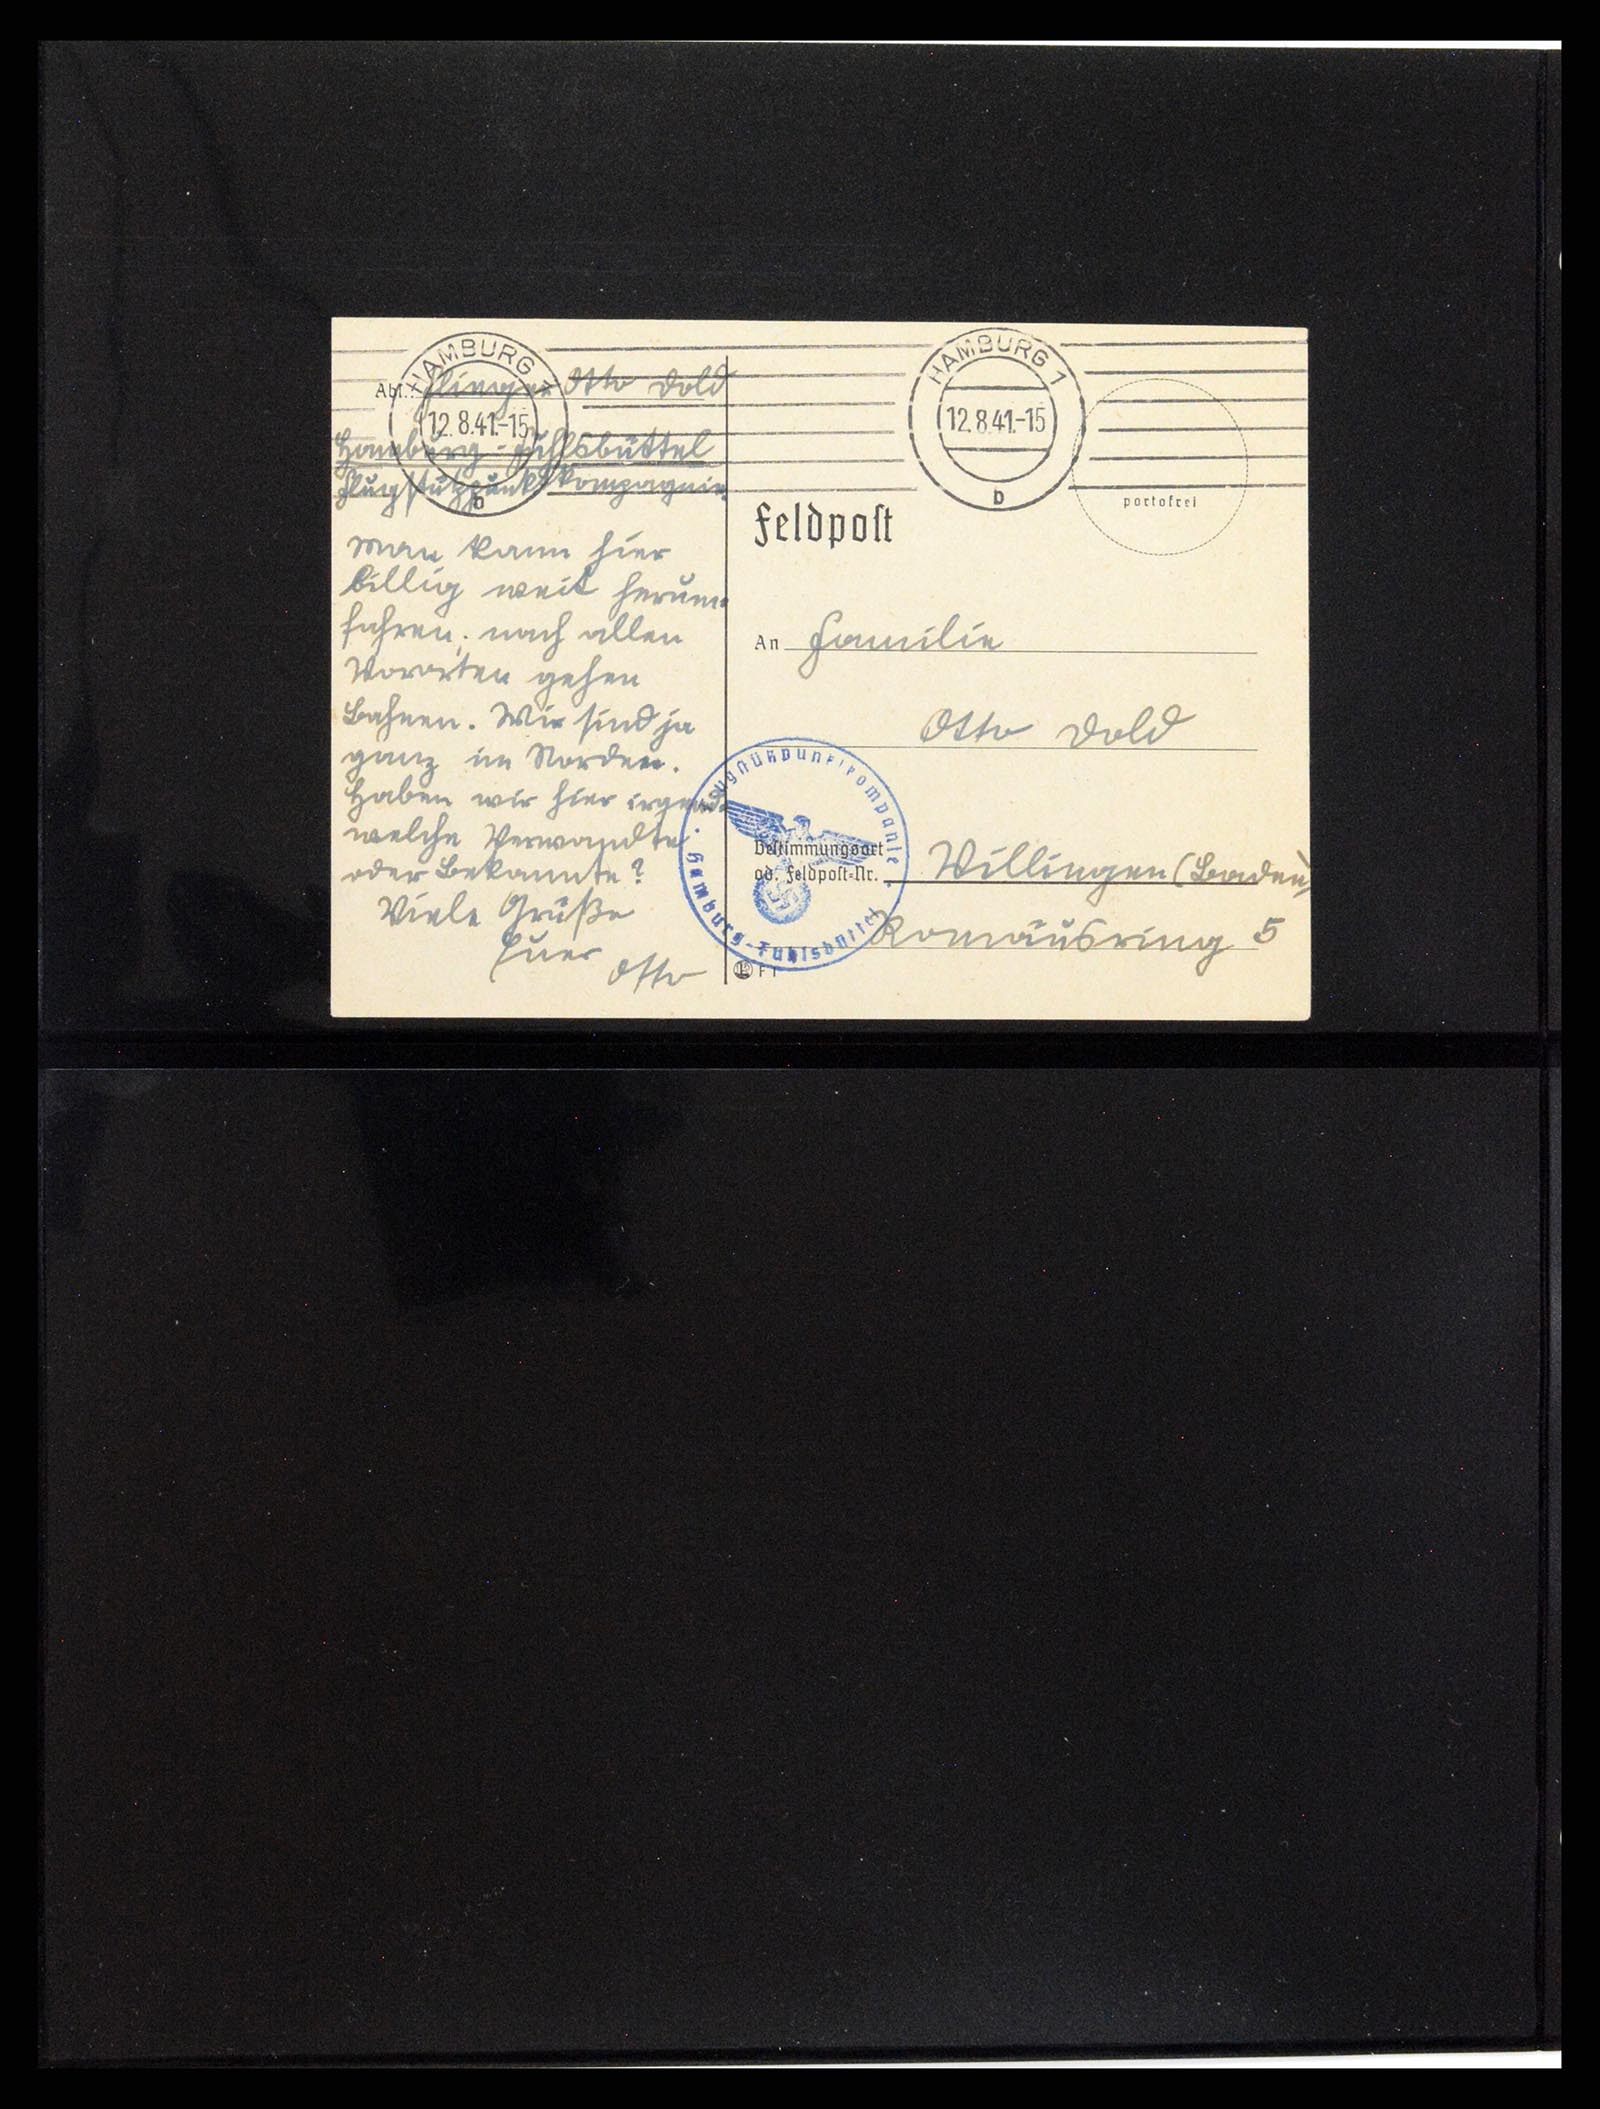 HAMBURG 1
12.8.41.-15
b
HAMBURG 1
12.8.41.-15
b
Abs.: Flieger Otto Dold
Hamburg-Fuhlsbüttel
Flugstützpunktkompagnie
Man kann hier
billig weit herum-
fahren. nach allen
Vororten gehen
Bahnen. Wir sind ja
ganz im Norden.
Haben wir hier irgend-
welche Verwandte
oder Bekannte?
Viele Grüße
Euer
Otto
portofrei
Feldpost
An Familie
Otto Dold
Bestimmungsort
od. Feldpost-Nr. Villingen (Baden)
Romäusring 5
Flugstützpunktkompanie
Hamburg-Fuhlsbüttel
F 1